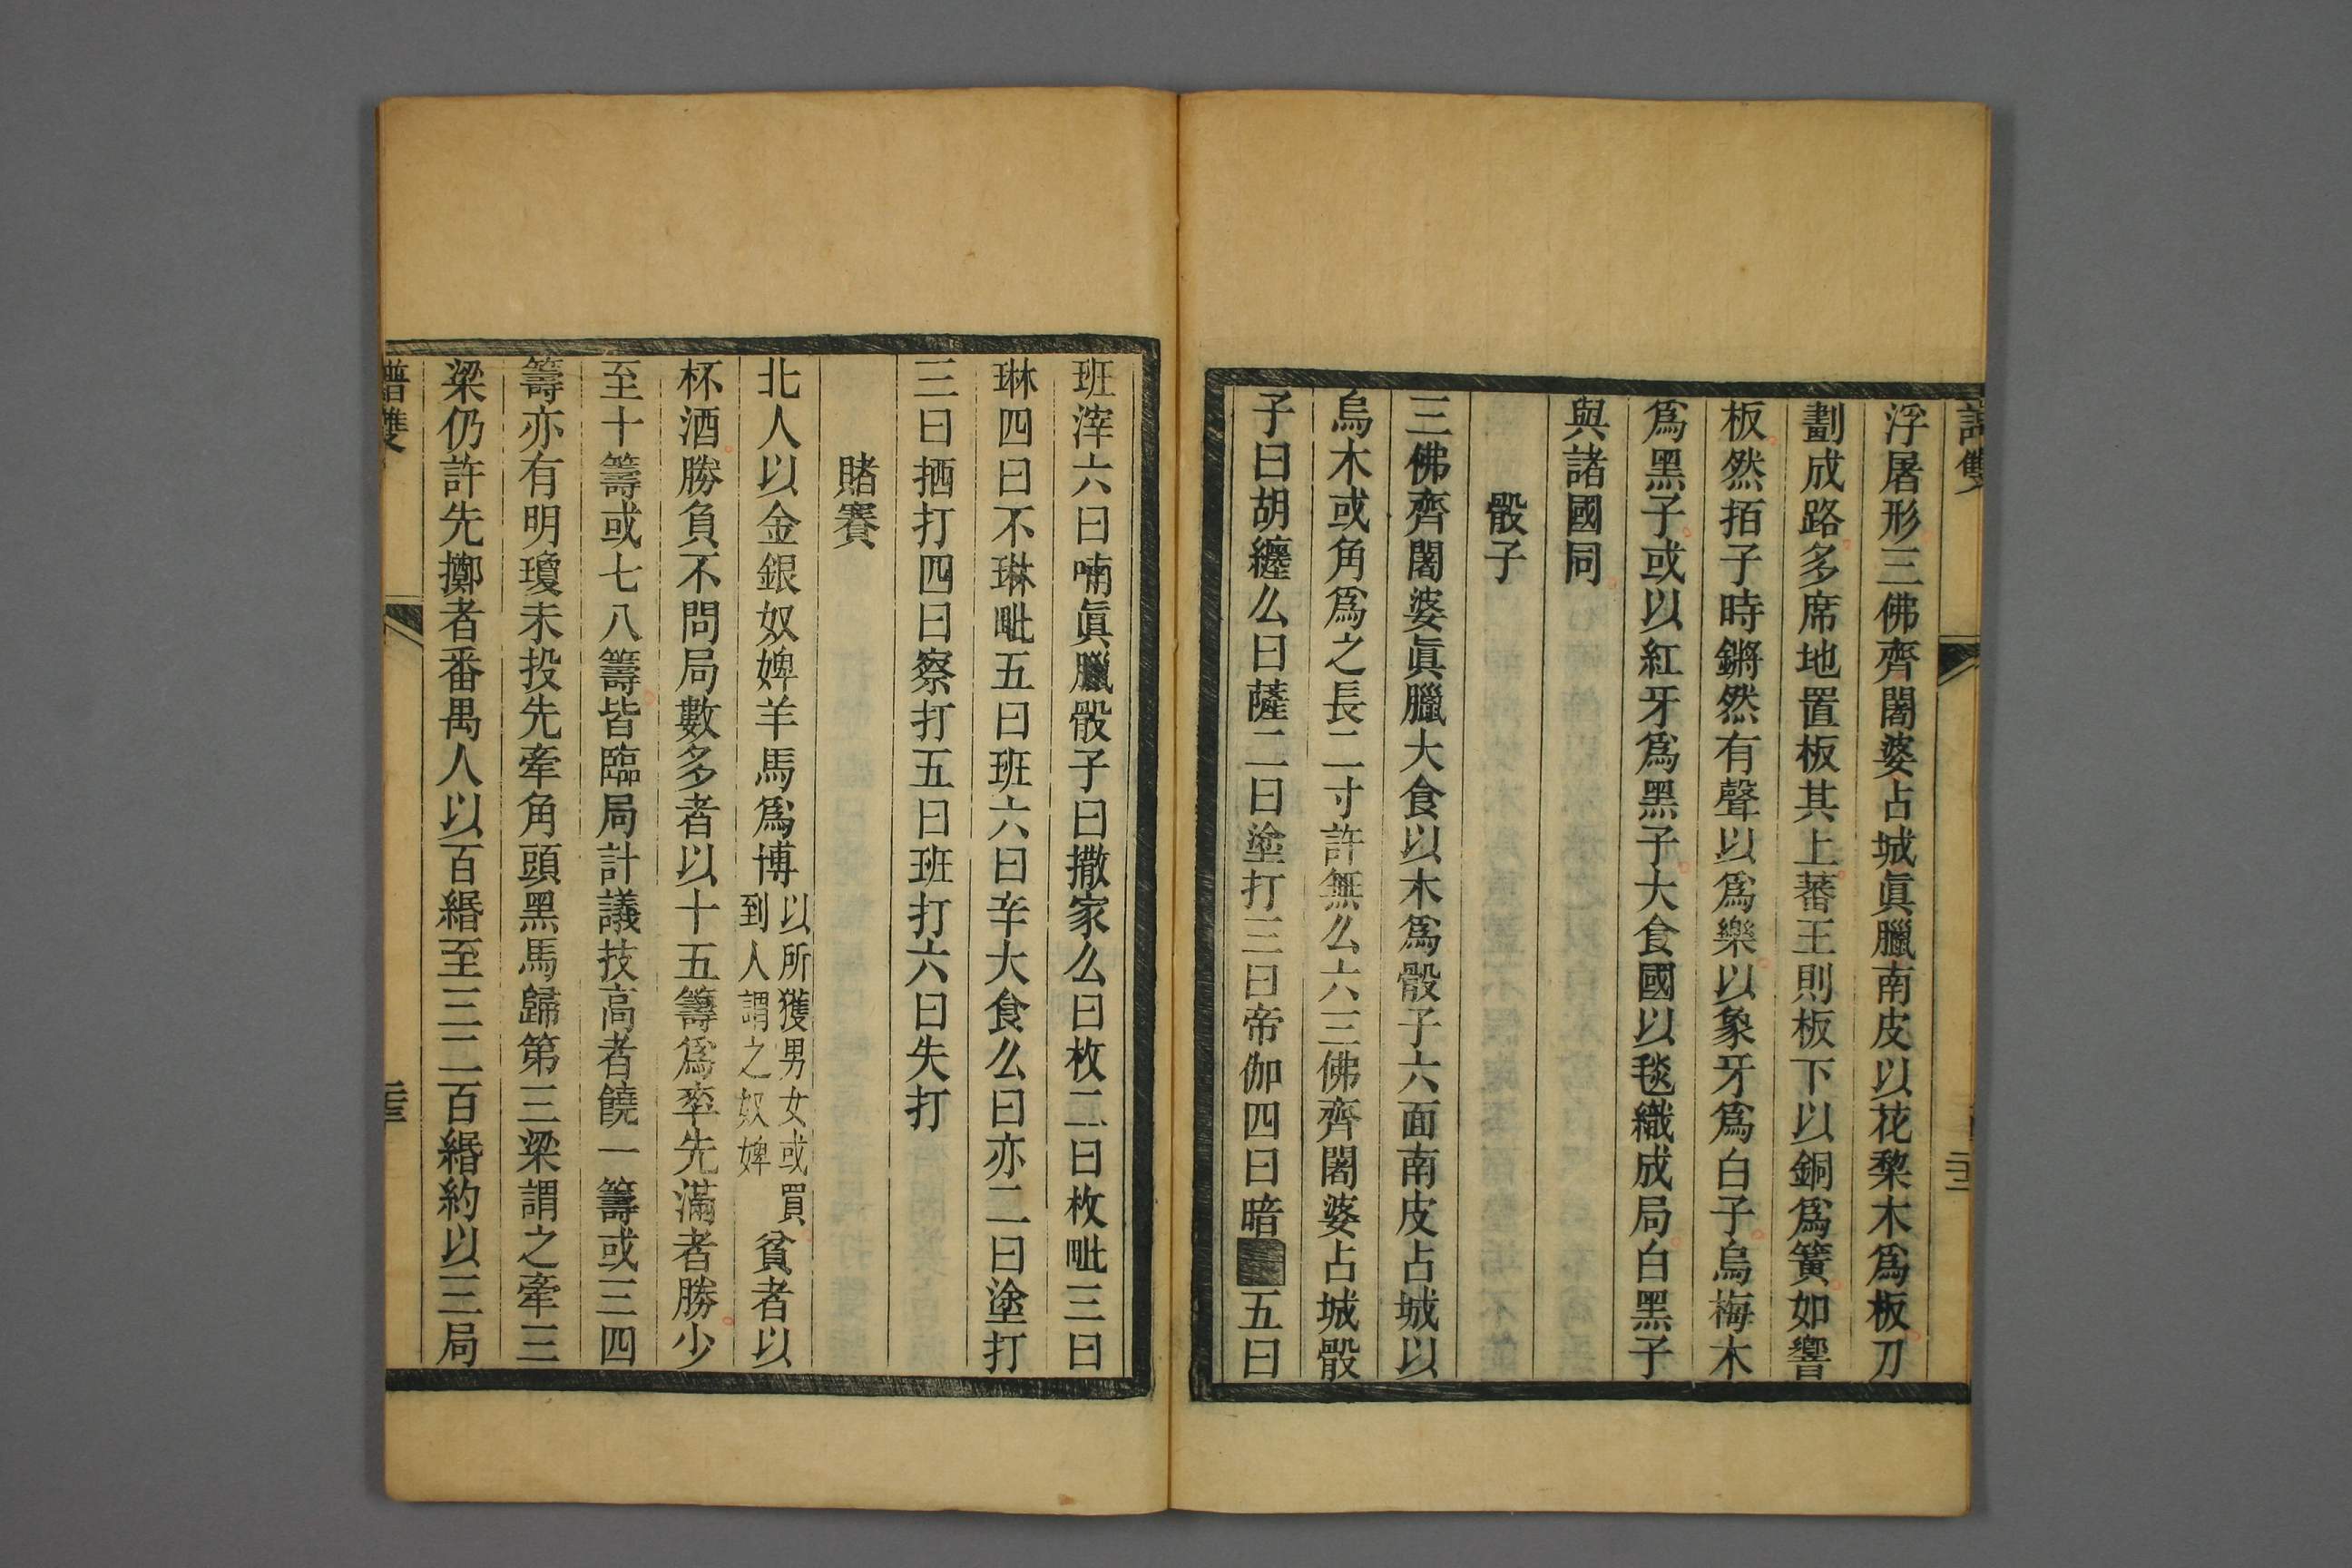 譜雙
二十二
浮屠形三佛齊闍婆占城眞臘南皮以花棃木爲板刀
劃成路多席地置板其上蕃王則板下以銅爲簧如響
板然拍子時鏘然有聲以爲樂以象牙爲白子烏梅木
爲黑子或以紅牙爲黑子大食國以毯織成局白黑子
與諸國同
骰子
三佛齊闍婆眞臘大食以木爲骰子六面南皮占城以
烏木或角爲之長二寸許無么六三佛齊闍婆占城骰
子曰胡纏么曰薩二曰塗打三曰帝伽四曰暗五曰
班滓六曰喃眞臘骰子曰撒家么曰枚二曰枚毗三曰
琳四曰不琳毗五曰班六曰辛大食么曰亦二曰塗打
三曰捂打四曰察打五曰班打六曰失打
賭賽
北人以金銀奴婢羊馬爲博以所獲男女或買到人謂之奴婢貧者以
杯酒勝負不問局數多者以十五籌爲率先滿者勝少
至十籌或七八籌皆臨局計議技高者饒一籌或三四
籌亦有明瓊未投先牽角頭黑馬歸第三梁謂之牽三
梁仍許先擲者番禺人以百緡至三二百緡約以三局
譜雙